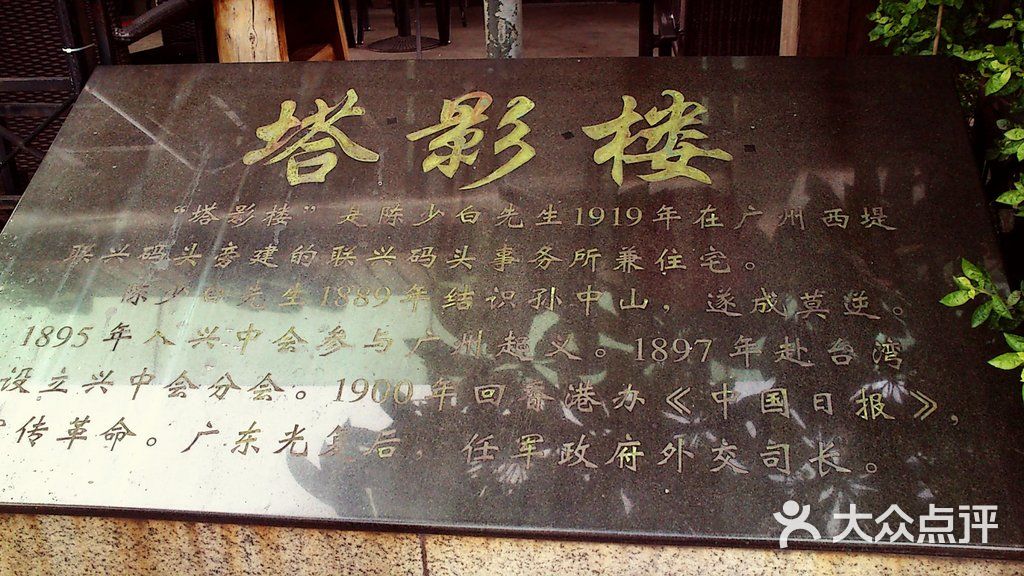 塔影楼
“塔影楼”是陈少白先生1919年在广州西堤
联兴码头旁建的联兴码头事务所兼住宅。
陈少白先生1889年结识孙中山，遂成莫逆。
1895年入兴中会参与广州起义。1897年赴台湾
设立兴中会分会。1900年回香港办《中国日报》，
宣传革命。广东光复后，任军政府外交司长。
大众点评